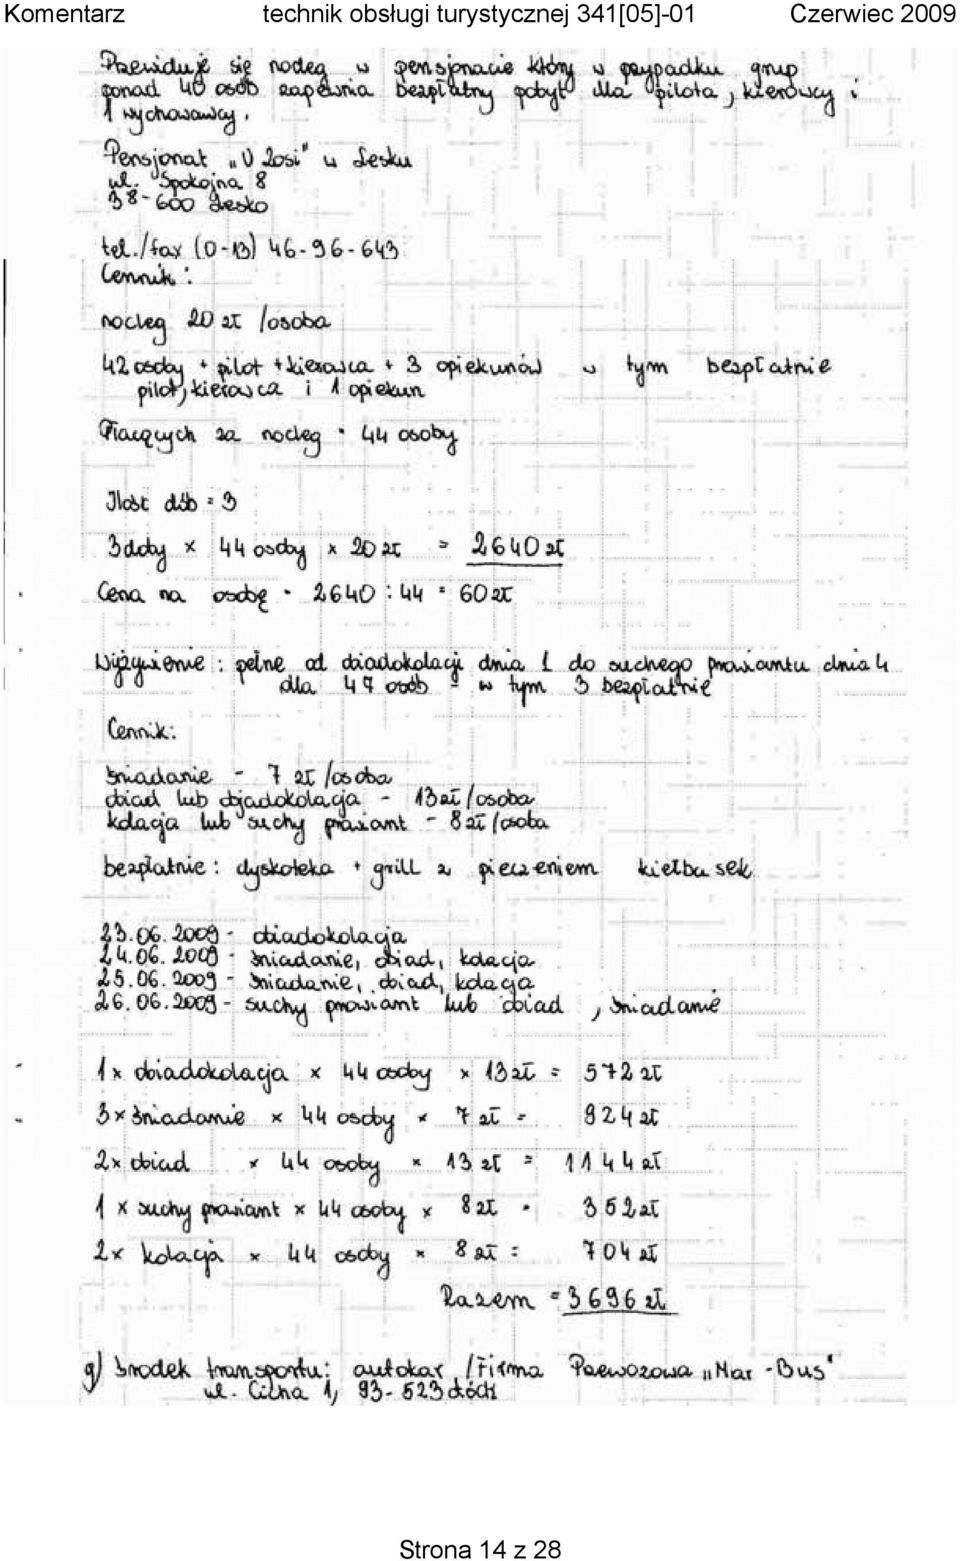 Komentarz technik obsługi turystycznej 341[05]-01 Czerwiec 2009
Przewiduje się nocleg w pensjonacie który w przypadku grup
ponad 40 osób zapewnia bezpłatny pobyt dla pilota, kierowcy i
1 wychowawcy.
Pensjonat „U Zosi" w Lesku
ul. Spokojna 8
38-600 Lesko
tel./fax (0-13) 46-96-643
Cennik:
nocleg 20 zł /osoba
42 osoby + pilot + kierowca + 3 opiekunów w tym bezpłatnie
pilot, kierowca i 1 opiekun
Płacących za nocleg = 44 osoby
Ilość dób = 3
3 doby x 44 osoby x 20 zł = 2640 zł
Cena na osobę = 2640 : 44 = 60 zł
Wyżywienie : pełne od obiadokolacji dnia 1 do suchego prowiantu dnia 4
dla 47 osób - w tym 3 bezpłatnie
Cennik:
śniadanie - 7 zł /osoba
obiad lub objadokolacja - 13 zł /osoba
kolacja lub suchy prowiant - 8 zł /osoba
bezpłatnie : dyskoteka + grill z pieczeniem kiełbasek
23.06.2009 - obiadokolacja
24.06.2009 - śniadanie, obiad, kolacja
25.06.2009 - śniadanie, obiad, kolacja
26.06.2009 - suchy prowiant lub obiad , śniadanie
1 x obiadokolacja x 44 osoby x 13 zł = 572 zł
3 x śniadanie x 44 osoby x 7 zł = 924 zł
2 x obiad x 44 osoby x 13 zł = 1144 zł
1 x suchy prowiant x 44 osoby x 8 zł = 352 zł
2 x kolacja x 44 osoby x 8 zł = 704 zł
Razem = 3696 zł
g) Środek transportu: autokar /Firma Przewozowa „Mar-Bus"
ul. Cicha 1, 93-523 Łódź
Strona 14 z 28